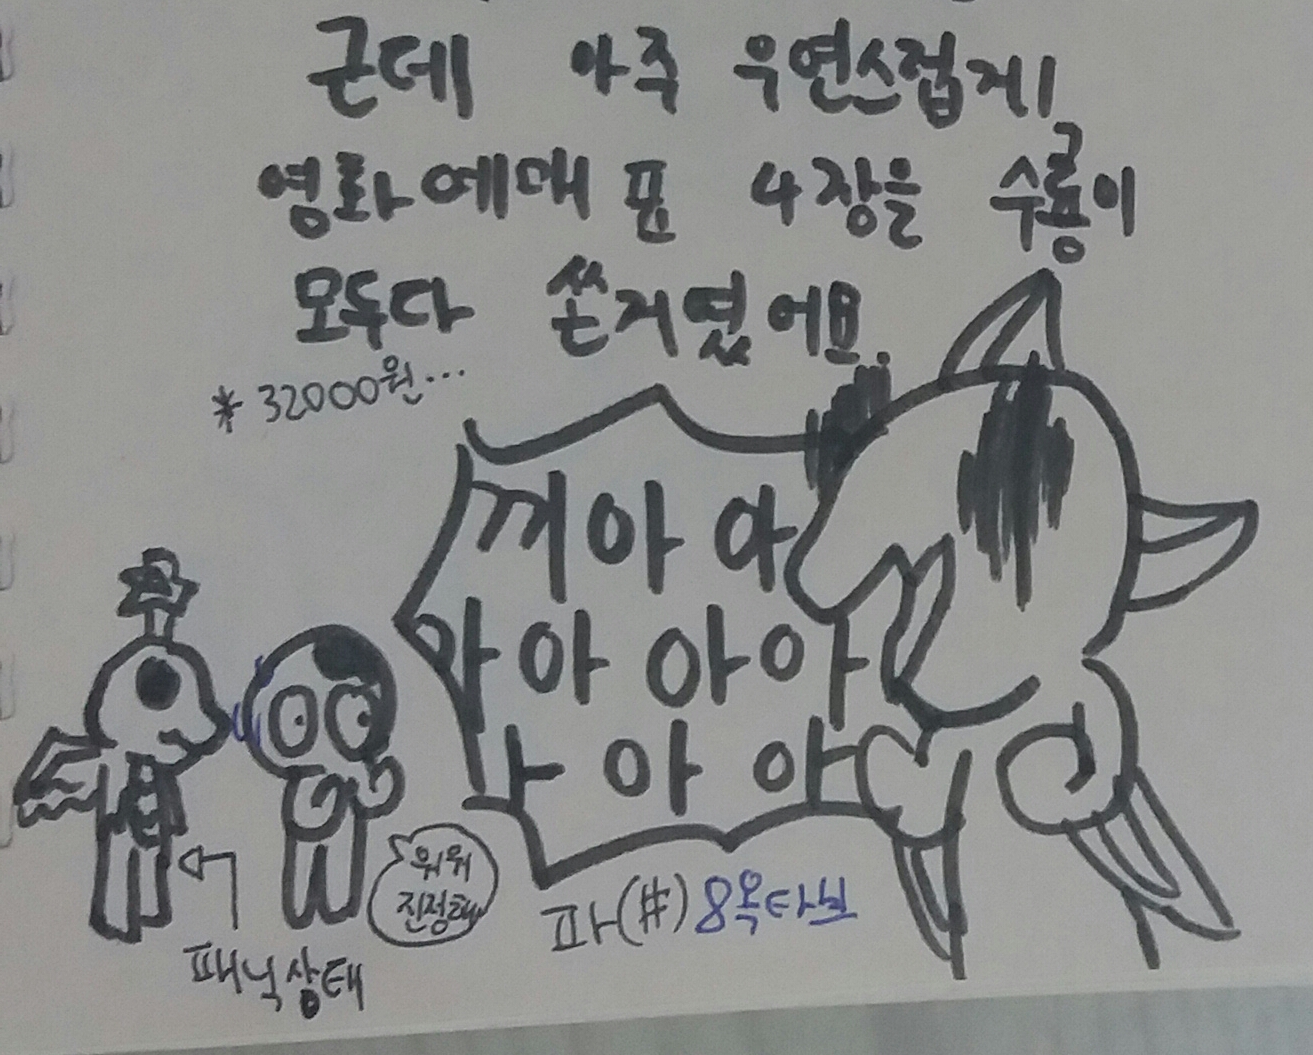 근데 아주 우연스럽게
영화예매 표 4장을 수룡이
모두다 쏜거였어요.
*32000원...
끼아아
아아아아
아아아
워워
진정해
파(#) 8옥타브
패닉상태